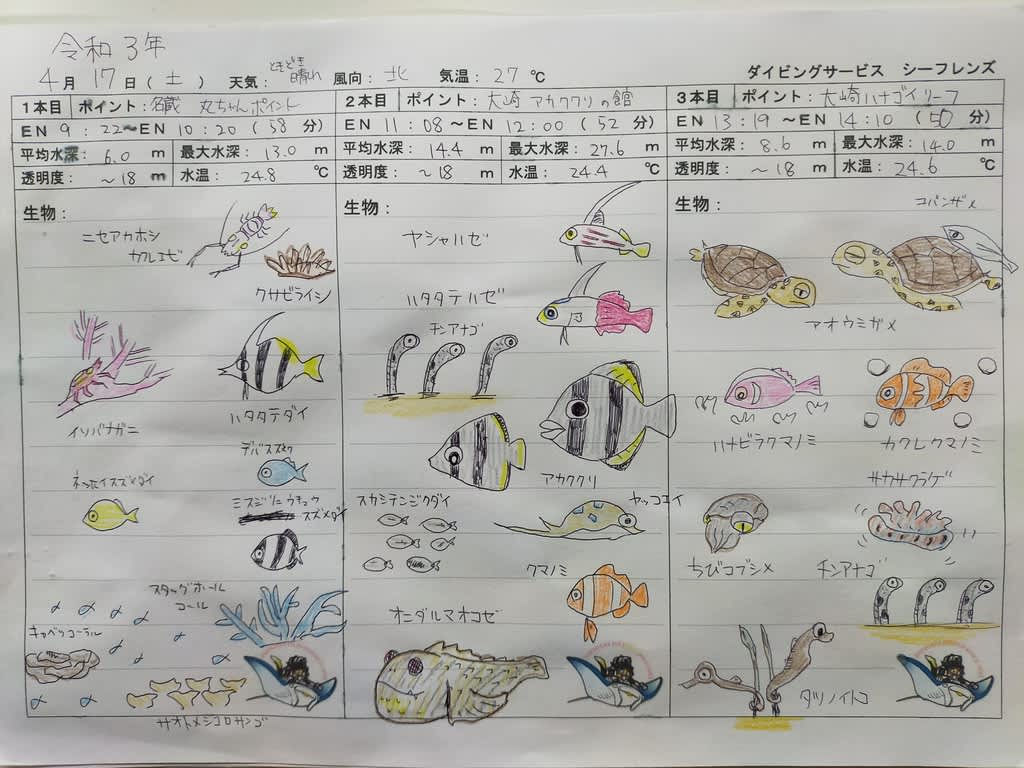 令和3年
4月 17日(土) 天気: ときどき晴れ 風向: 北 気温: 27℃ ダイビングサービス シーフレンズ
1本目 ポイント: 名蔵 丸ちゃんポイント
EN 9:22~EN 10:20 (58分)
平均水深: 6.0 m 最大水深: 13.0 m
透明度: ~18 m 水温: 24.8 ℃
生物:
ニセアカホシ
カクレエビ
クサビライシ
イソバナガニ
ハタタテダイ
デバスズメダイ
ネッタイスズメダイ
ミスジリュウキュウ
スズメダイ
スタッグホーン
コーラル
キャベツコーラル
サオトメシコロサンゴ
2本目 ポイント: 大崎 アカククリの館
EN 11:08~EN 12:00 (52分)
平均水深: 14.4 m 最大水深: 27.6 m
透明度: ~18 m 水温: 24.4 ℃
生物:
ヤシャハゼ
ハタタテハゼ
チンアナゴ
アカククリ
スカシテンジクダイ
ヤッコエイ
クマノミ
オニダルマオコゼ
3本目 ポイント: 大崎ハナゴイリーフ
EN 13:19~EN 14:10 (50分)
平均水深: 8.6 m 最大水深: 14.0 m
透明度: ~18 m 水温: 24.6 ℃
生物:
コバンザメ
アオウミガメ
ハナビラクマノミ
カクレクマノミ
サカサクラゲ
ちびコブシメ
チンアナゴ
タツノイトコ